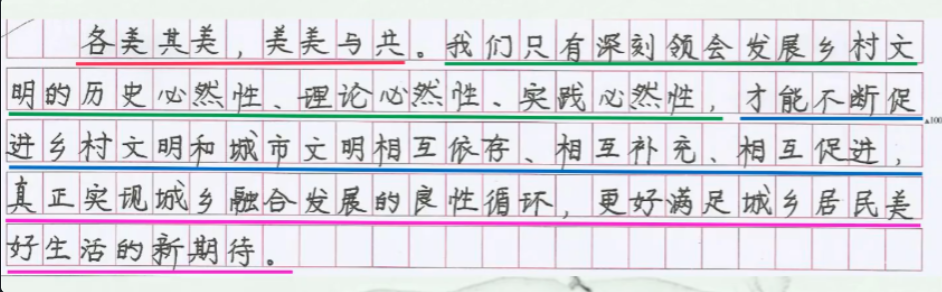 各美其美，美美与共。我们只有深刻领会发展乡村文
明的历史必然性、理论必然性、实践必然性，才能不断促
▲100
进乡村文明和城市文明相互依存、相互补充、相互促进，
真正实现城乡融合发展的良性循环，更好满足城乡居民美
好生活的新期待。